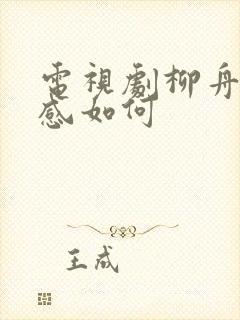 電視劇柳舟
感如何
王成